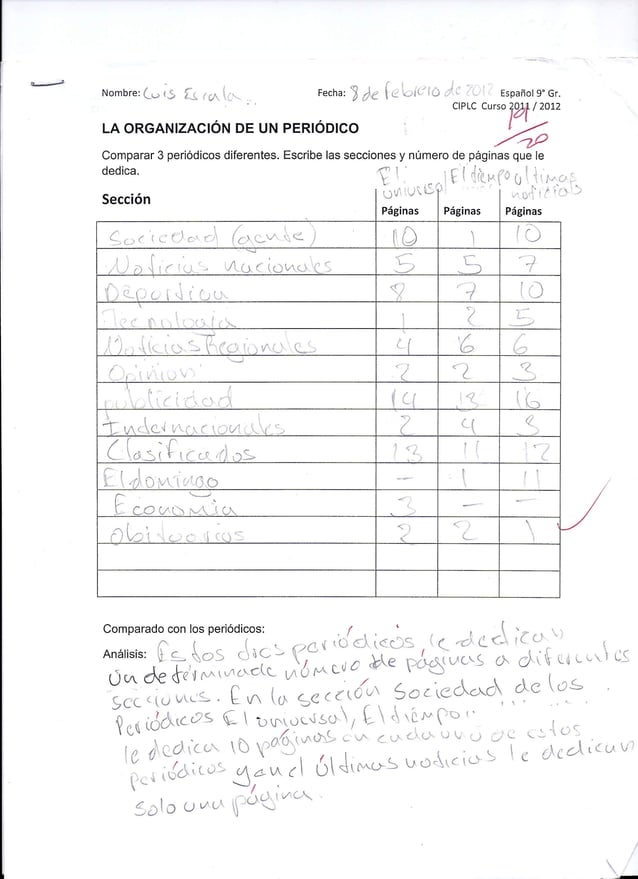 Nombre: Luis Escala Fecha: 8 de febrero de 2012 Español 9° Gr.
CIPLC Curso 2011 / 2012
19/20
LA ORGANIZACIÓN DE UN PERIÓDICO
Comparar 3 periódicos diferentes. Escribe las secciones y número de páginas que le
dedica.
El universal El tiempo últimas noticias
Sección Páginas Páginas Páginas
Sociedad (gente) 10 1 10
Noticias nacionales 5 5 7
Deportiva 8 7 10
Tecnologia 1 2 5
Noticias Regionales 4 6 6
Opinion 2 2 3
publicidad 14 13 16
Indernacionales 2 4 3
Clasificados 13 11 12
El domingo - 1 11
Economia 3 - -
Obituarios 2 2 1
Comparado con los periódicos:
Análisis: Estos dres periódicos le dedican
un determinade número de páginas a diferentes
secciones. En la sección Sociedad de los
Periódicos El universal, El tiempo
le dedica 10 páginas en cada uno de estos
periódicos y en el Últimas noticias le dedican
solo una página.